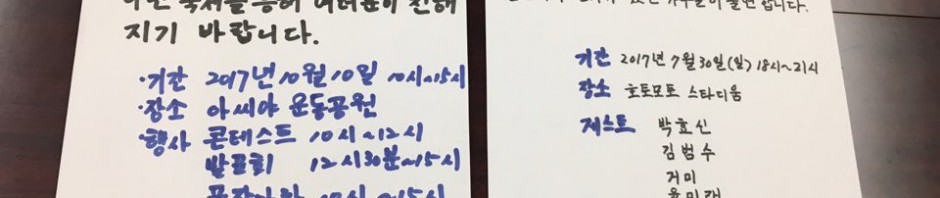 축제를 통해 여러분이 친해
지기 바랍니다.
·기간 2017년 10월 10일 10시~15시
·장소 아씨야 운동공원
·행사 콘테스트 10시~12시
발표회 12시30분~15시
10시~15시
있는 가수들이 출연합니다.
기간 2017년 7월 30일(일) 18시~21시
장소 호토모토 스타디움
게스트 박효신
김범수
거미
윤미래